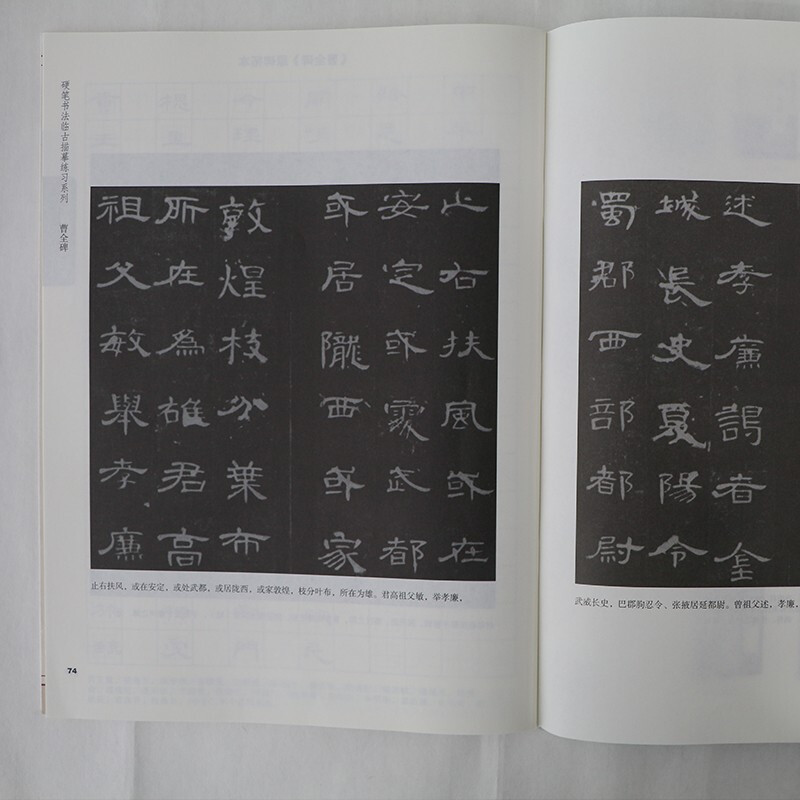 硬笔书法临古描摹练习系列
曹全碑
止右扶風或在
安定或處武都
或居隴西或家
敦煌枝分葉布
所在為雄君高
祖父敏舉孝廉
止右扶风，或在安定，或处武都，或居陇西，或家敦煌，枝分叶布，所在为雄。君高祖父敏，举孝廉，
74
述孝廉謁者金
城長史夏陽令
蜀郡西部都尉
武威长史，巴郡朐忍令、张掖居延都尉。曾祖父述，孝廉，